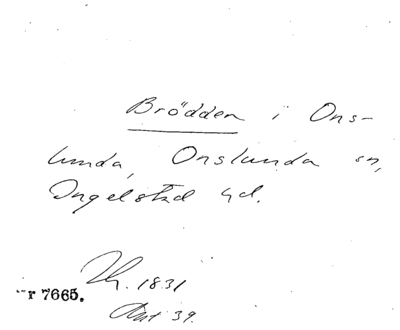 Brödden i Ons-
lunda, Onslunda sn,
Ingelstad hd.
1831
r 7665.
39.